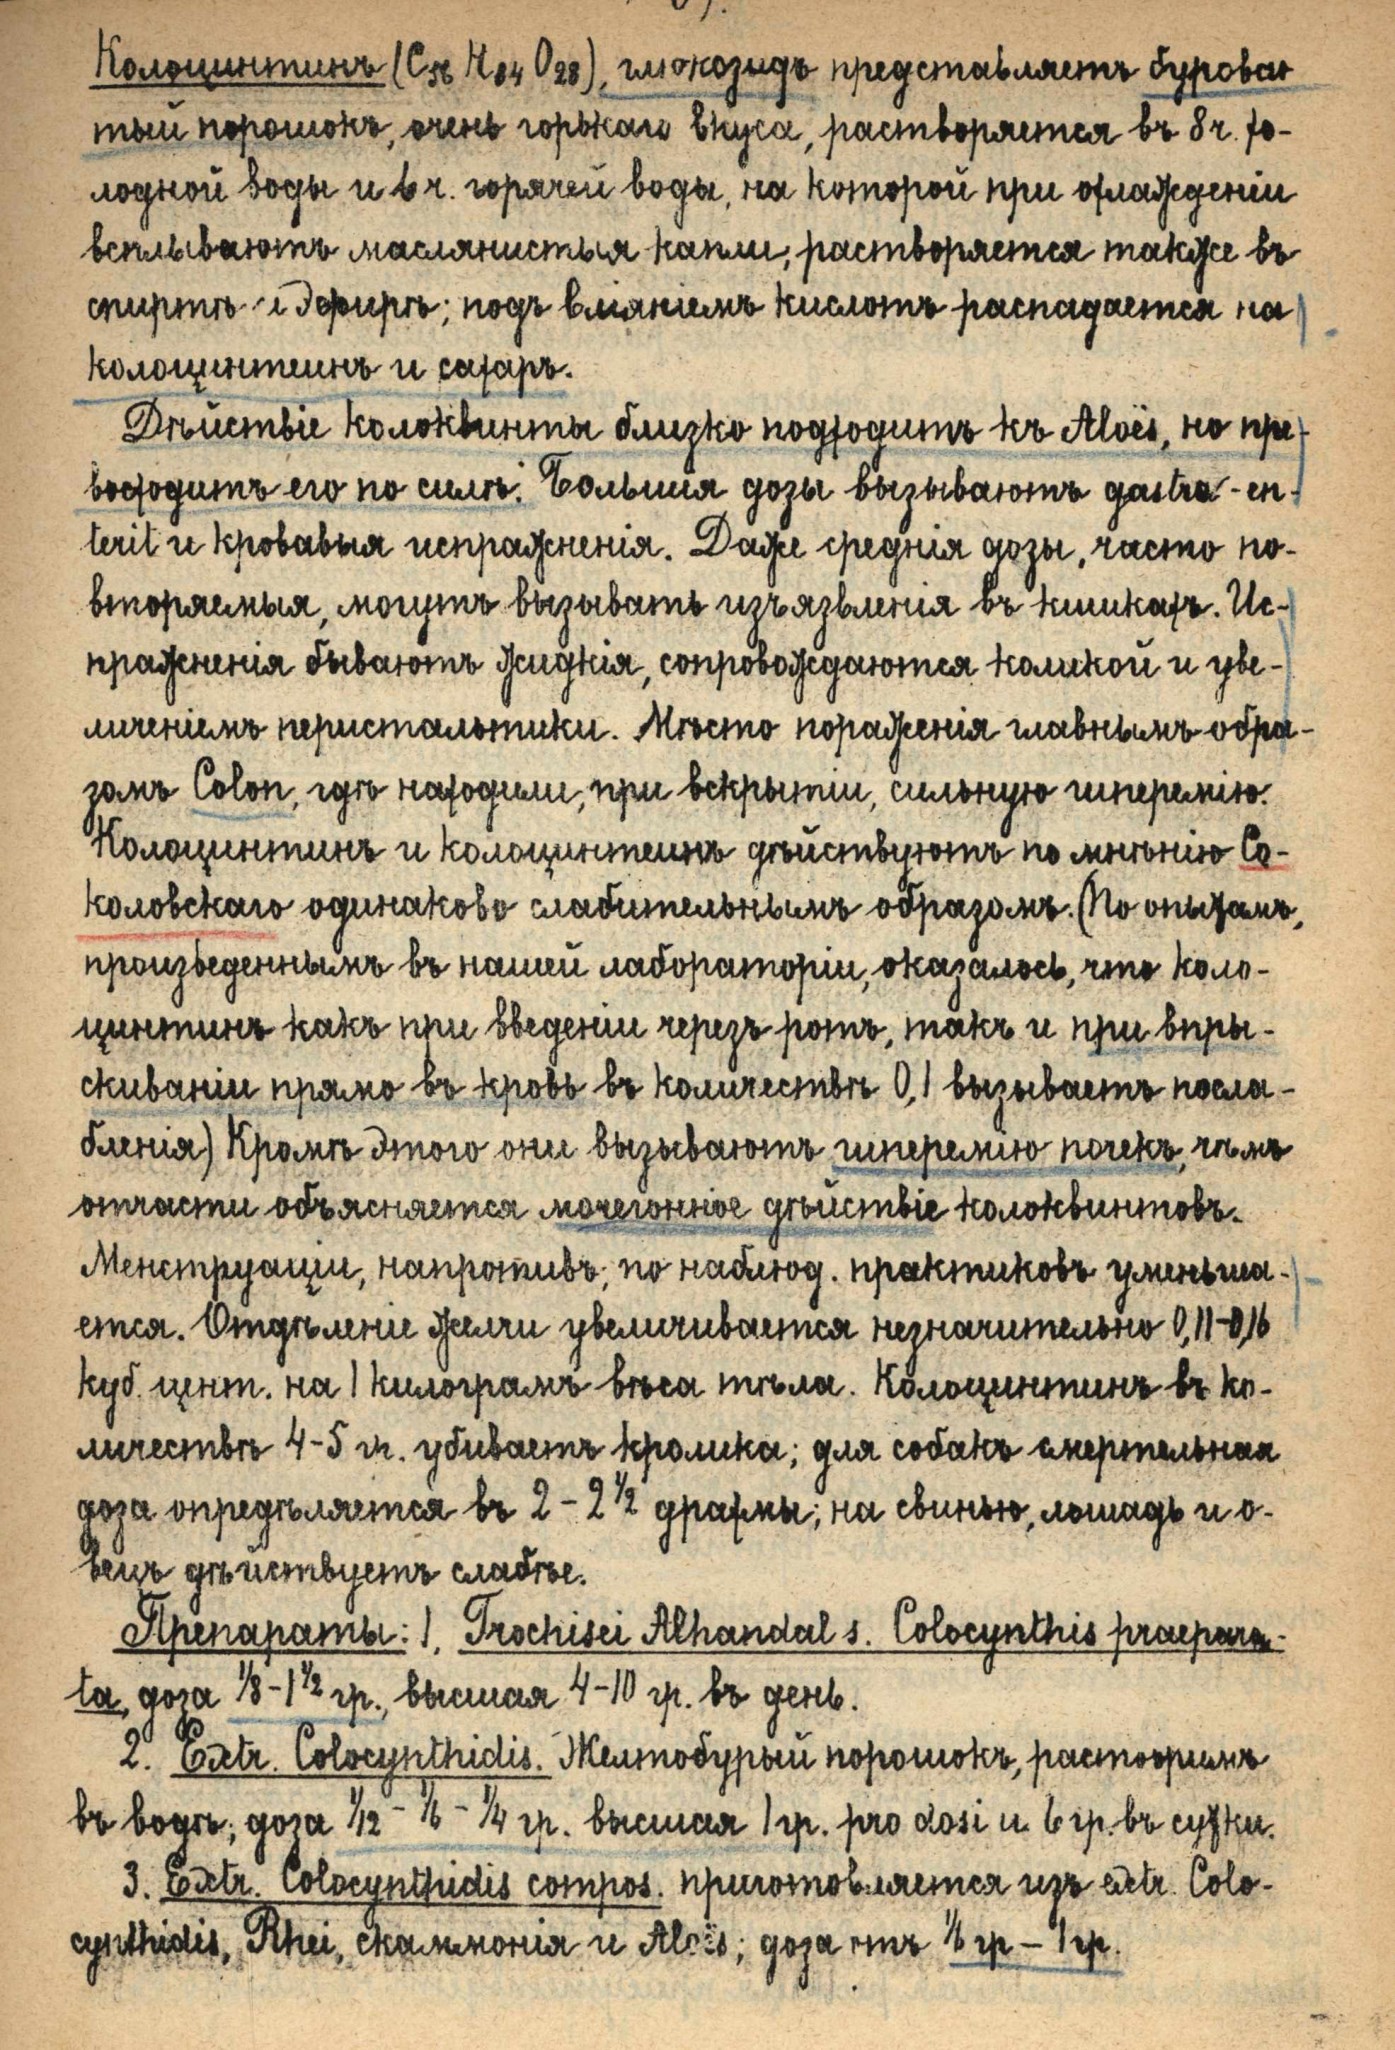 Колоцинтинъ (C56 H84 O28), глюкозидъ представляетъ бурова-
тый порошокъ, очень горькаго вкуса, растворяется въ 8 ч. хо-
лодной воды и 6 ч. горячей воды, на которой при охлажденіи
всплываютъ маслянистыя капли, растворяется также въ
спиртѣ и эфирѣ; подъ вліяніемъ кислотъ распадается на
колоцинтеинъ и сахаръ.
Дѣйствіе колоквинты близко подходитъ къ Aloës, но пре-
восходитъ его по силѣ. Большія дозы вызываютъ gastro-en-
terit и кровавыя испражненія. Даже среднія дозы, часто по-
вторяемыя, могутъ вызывать изъязвленія въ кишкахъ. Ис-
пражненія бываютъ жидкія, сопровождаются коликой и уве-
личеніемъ перистальтики. Мѣсто пораженія главнымъ обра-
зомъ Colon, гдѣ находили, при вскрытіи, сильную гиперемію.
Колоцинтинъ и колоцинтеинъ дѣйствуютъ по мнѣнію Со-
коловскаго одинаково слабительнымъ образомъ. (По опытамъ,
произведеннымъ въ нашей лабораторіи, оказалось, что коло-
цинтинъ какъ при введеніи черезъ ротъ, такъ и при впры-
скиваніи прямо въ кровь въ количествѣ 0,1 вызываетъ посла-
бленія) Кромѣ этого они вызываютъ гиперемію почекъ, чѣмъ
отчасти объясняется мочегонное дѣйствіе колоквинтовъ.
Менструаціи, напротивъ, по наблюд. практиковъ уменьша-
ется. Отдѣленіе желчи увеличивается незначительно 0,11-0,16
куб. цент. на 1 килограмъ вѣса тѣла. Колоцинтинъ въ ко-
личествѣ 4-5 гр. убиваетъ кролика; для собакъ смертельная
доза опредѣляется въ 2 - 2 1/2 драхмы; на свинью, лошадь и о-
вецъ дѣйствуетъ слабѣе.
Препараты: 1, Trochisci Alhandal s. Colocynthis praepara-
ta, доза 1/8 - 1 1/2 гр., высшая 4-10 гр. въ день.
2. Extr. Colocynthidis. Желтобурый порошокъ, растворимъ
въ водѣ; доза 1/12 - 1/6 - 1/4 гр. высшая 1 гр. pro dosi и 6 гр. въ сутки.
3. Extr. Colocynthidis compos. приготовляется изъ extr. Colo-
cynthidis, Rhei, скаммонія и Aloës; доза отъ 1/6 гр - 1 гр.